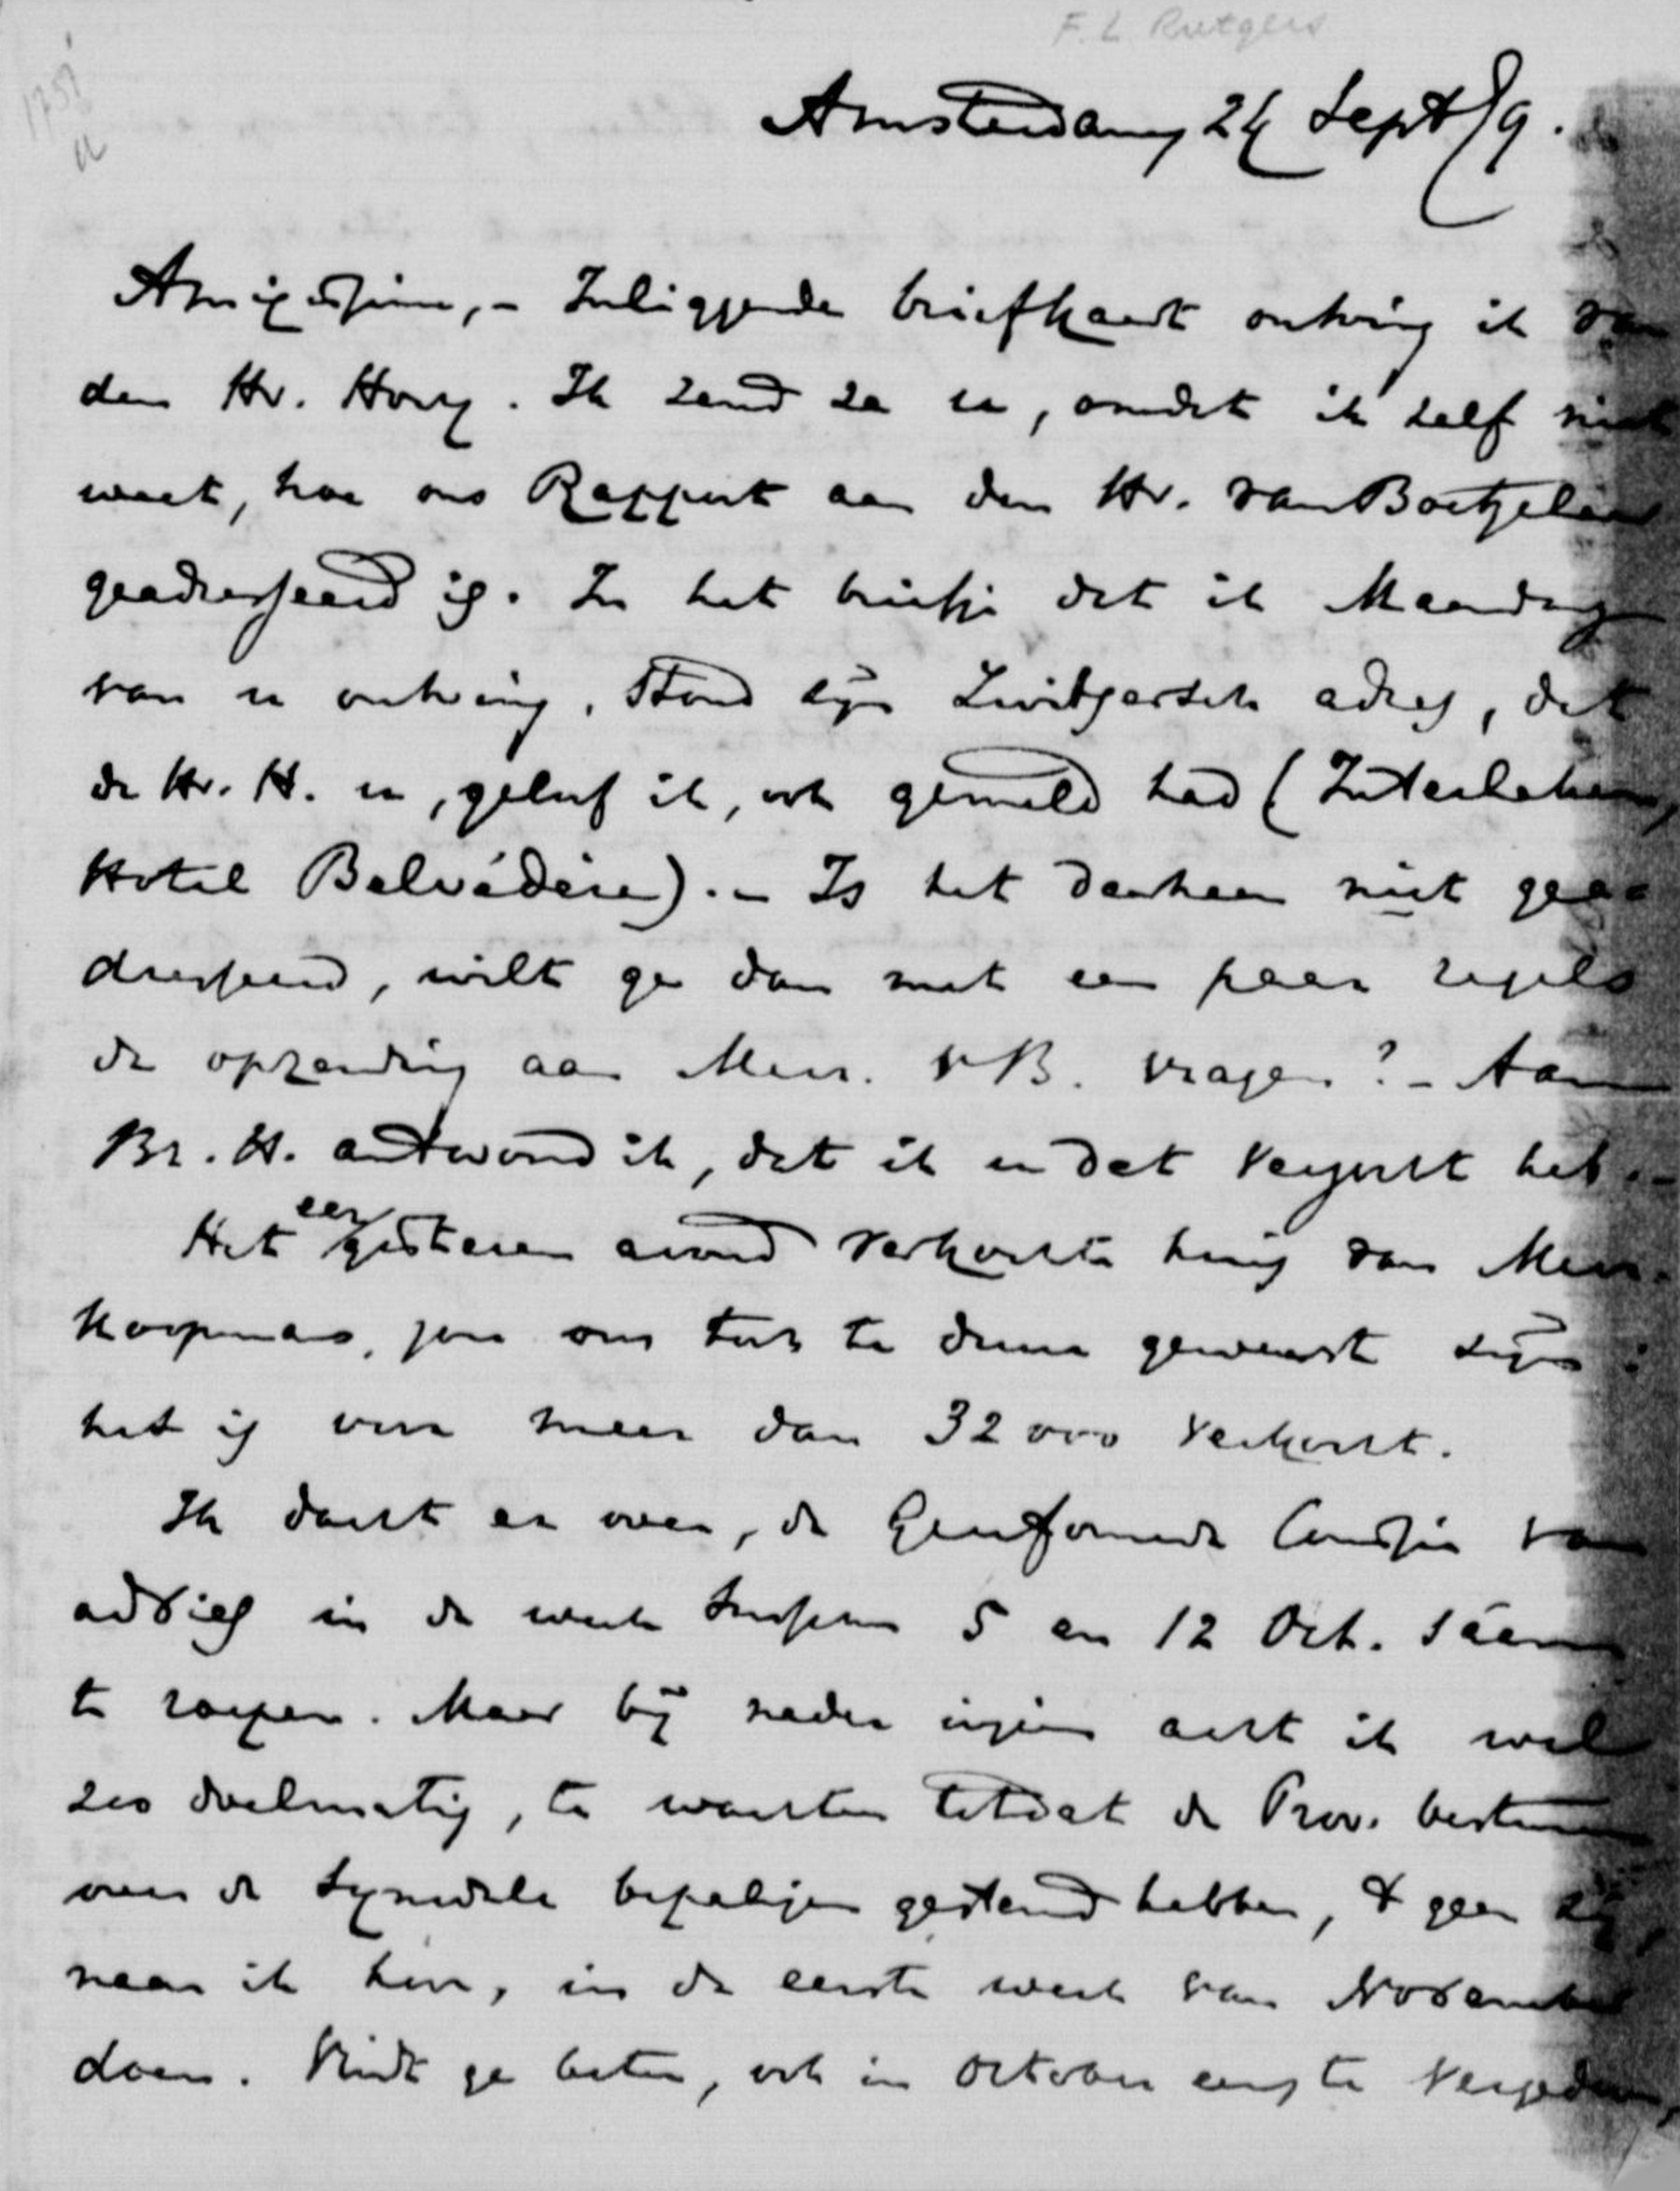 F. L. Rutgers
Amsterdam, 24 Sept 79.
Amicissime, - Inliggende briefkaart ontving ik van
den Hr. Hovy. Ik zend ze u, omdat ik zelf niet
weet, hoe ons Rapport aan den Hr. van Boetzelaer
geadresseerd is. In het briefje dat ik Maandag
van u ontving, stond zijn Zwitsersch adres, dat
de Hr. H. u, geloof ik, ook gemeld had (Interlaken,
Hotel Belvédère). - Is het daarheen niet gea-
dresseerd, wilt ge dan met een paar regels
de opzending aan Mevr. v B. vragen? - Aan
Br. H. antwoord ik, dat ik u dat verzocht heb. -
Het eer gisteren avond verkochte huis van Mevr.
Koopmans, zou ons toch te duur geweest zijn:
het is voor meer dan 32000 verkocht.
Ik dacht er over, de Gereformeerde Comissie van
advies in de week tusschen 5 en 12 Oct. saam
te roepen. Maar bij nader inzien acht ik wel
zoo doelmatig, te wachten totdat de Prov. besturen
over de Synodale bepalingen gestemd hebben, & geen zij,
naar ik hoor, in de eerste week van November
doen. Vindt ge beter, ook in October eens te vergaderen,